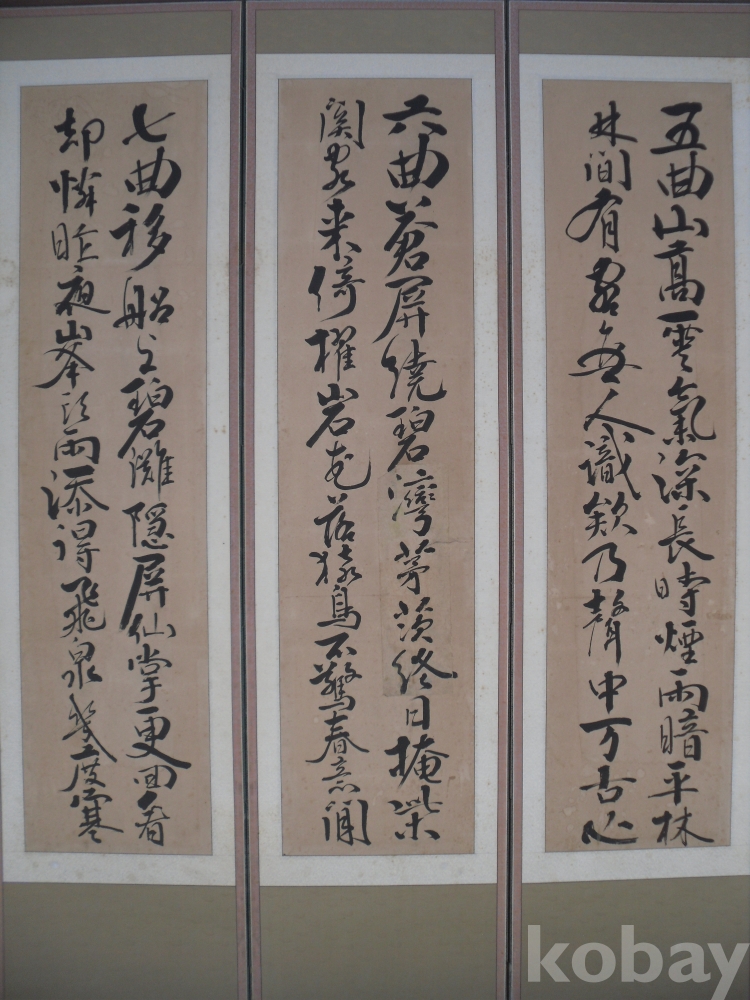 五曲山高雲氣深長時煙雨暗平林
林間有客無人識欸乃聲中万古心
六曲蒼屏繞碧灣茅茨終日掩柴
関客来倚櫂岩花落猿鳥不驚春意閒
七曲移船上碧灘隱屏仙掌更回看
却憐昨夜峯頭雨添得飛泉幾度寒
kobay